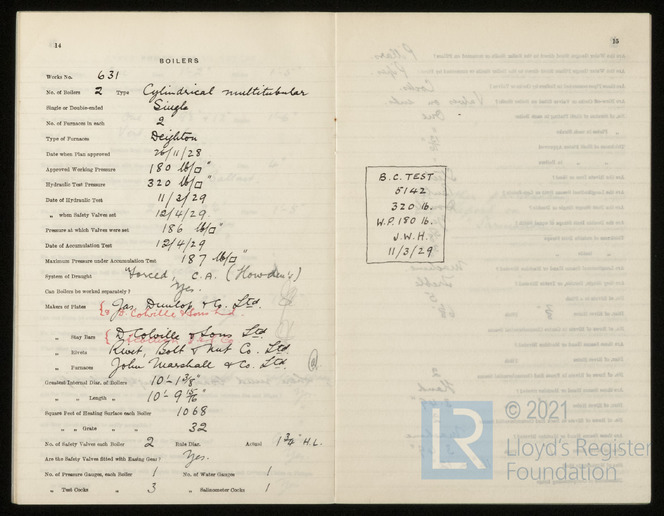 14
BOILERS
Works No. 631
No. of Boilers 2 Type Cylindrical multitubular
Single or Double-ended Single
No. of Furnaces in each 2
Type of Furnaces Deighton
Date when Plan approved 26/11/28
Approved Working Pressure 180 lb/□"
Hydraulic Test Pressure 320 lb/□"
Date of Hydraulic Test 11/3/29
„ when Safety Valves set 12/4/29
Pressure at which Valves were set 186 lb/□"
Date of Accumulation Test 12/4/29
Maximum Pressure under Accumulation Test 187 lb/□"
System of Draught Forced, C.A. (Howden's)
Can Boilers be worked separately? Yes.
Makers of Plates Jas. Dunlop & Co. Ltd.
& D. Colville & Sons Ltd.
„ Stay Bars D. Colville & Sons Ltd.
„ Rivets Rivet, Bolt & Nut Co. Ltd.
„ Furnaces John Marshall & Co. Ltd.
Greatest Internal Diam. of Boilers 10'-1⅜"
„ „ Length „ 10'-9 15/16"
Square Feet of Heating Surface each Boiler 1068
„ „ Grate „ „ 32
No. of Safety Valves each Boiler 2 Rule Diam. Actual 1¾" H.L.
Are the Safety Valves fitted with Easing Gear? Yes.
No. of Pressure Gauges, each Boiler 1 No. of Water Gauges 1
„ Test Cocks „ 3 „ Salinometer Cocks 1
15
B.C. TEST
5142
320 lb.
W.P. 180 lb.
J.W.H.
11/3/29
LR
© 2021
Lloyd's Register
Foundation